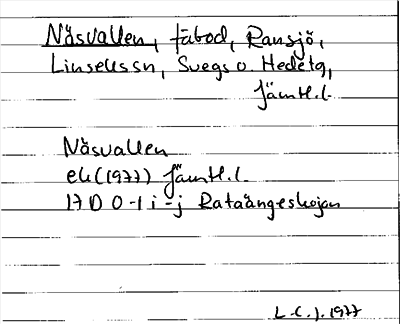 Näsvallen, fäbod, Ransjö,
Linsellssn, Svegs o. Hedetg,
Jämtl.l.
Näsvallen
ek (1977) Jämtl.l.
17 D 0-1 i-j Rataängeskojan
L.C.J. 1977